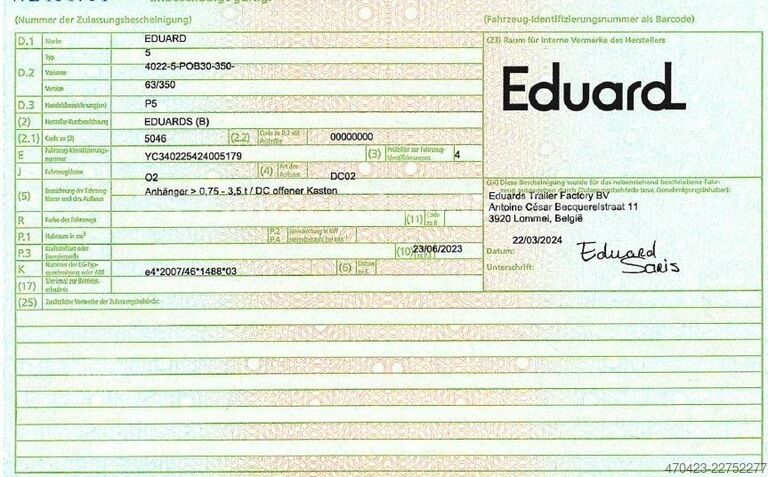 (Nummer der Zulassungsbescheinigung)
(Fahrzeug-Identifizierungsnummer als Barcode)
D.1 Marke EDUARD
Typ 5
D.2 Variante 4022-5-POB30-350-
Version 63/350
D.3 Handelsbezeichnung(en) P5
(2) Hersteller-Kurzbezeichnung EDUARDS (B)
(2.1) Code zu (2) 5046 (2.2) Code zu D.2 mit Prüfziffer 00000000
E Fahrzeug-Identifizierungs-nummer YC340225424005179 (3) Prüfziffer zur Fahrzeug-Identifizierungsnr. 4
J Fahrzeugklasse O2 (4) Art des Aufbaus DC02
(5) Bezeichnung der Fahrzeug-klasse und des Aufbaus Anhänger > 0,75 - 3,5 t / DC offener Kasten
R Farbe des Fahrzeugs (11) Code zu R
P.1 Hubraum in cm³ P.2 P.4
P.3 Kraftstoffart oder Energiequelle (10) 23/06/2023
K Nummer der EG-Typ-genehmigung oder ABE e4*2007/46*1488*03 (6) Datum zu K
(17) Merkmal zur Betriebs-erlaubnis
(25) Zusätzliche Vermerke der Zulassungsbehörde:
(23) Raum für interne Vermerke des Herstellers
Eduard
(24) Diese Bescheinigung wurde für das nebenstehend beschriebene Fahr-
zeug ausgegeben durch (Zulassungsbehörde bzw. Genehmigungsinhaber):
Eduards Trailer Factory BV
Antoine César Becquerelstraat 11
3920 Lommel, België
22/03/2024
Datum:
Unterschrift: Eduard
Saris
470423-22752277